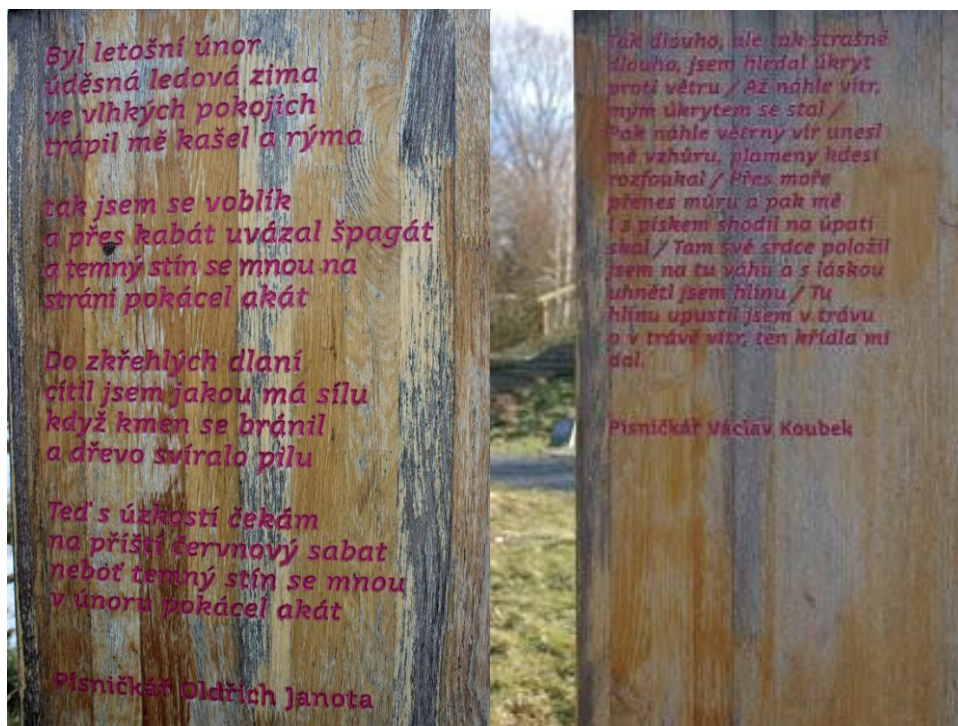 Byl letošní únor
úděsná ledová zima
ve vlhkých pokojích
trápil mě kašel a rýma
tak jsem se voblík
a přes kabát uvázal špagát
a temný stín se mnou na
stráni pokácel akát
Do zkřehlých dlaní
cítil jsem jakou má sílu
když kmen se bránil
a dřevo svíralo pilu
Teď s úzkostí čekám
na příští červnový sabat
neboť temný stín se mnou
v únoru pokácel akát
Písničkář Oldřich Janota
Tak dlouho, ale tak strašně
dlouho, jsem hledal úkryt
proti větru / Až náhle vítr,
mým úkrytem se stal /
Pak náhle větrný vír unesl
mě vzhůru, plameny kdesi
rozfoukal / Přes moře
přenes můru a pak mě
i s pískem shodil na úpatí
skal / Tam své srdce položil
jsem na tu váhu a s láskou
uhnětl jsem hlínu / Tu
hlínu upustil jsem v trávu
a v trávě vítr, ten křídla mi
dal.
Písničkář Václav Koubek